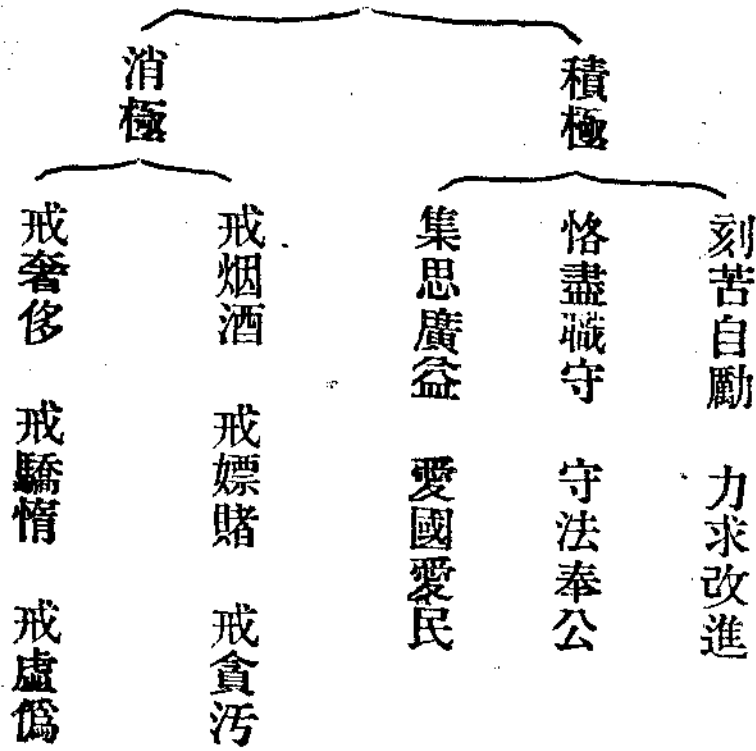 積極
刻苦自勵　力求改進
恪盡職守　守法奉公
集思廣益　愛國愛民
消極
戒烟酒　戒嫖賭　戒貪汚
戒奢侈　戒驕惰　戒虛僞